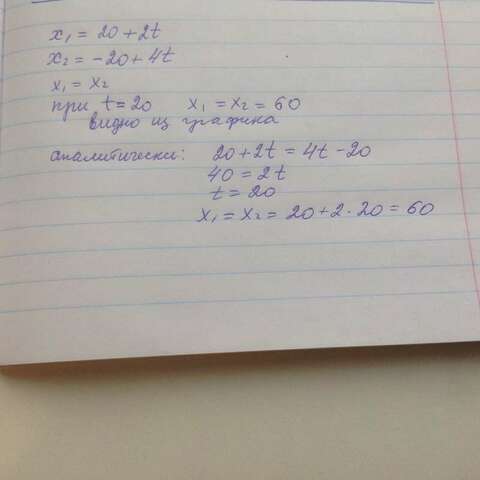 x₁ = 20 + 2t
x₂ = -20 + 4t
x₁ = x₂
при t = 20 x₁ = x₂ = 60
видно из графика
аналитически: 20 + 2t = 4t - 20
40 = 2t
t = 20
x₁ = x₂ = 20 + 2 · 20 = 60